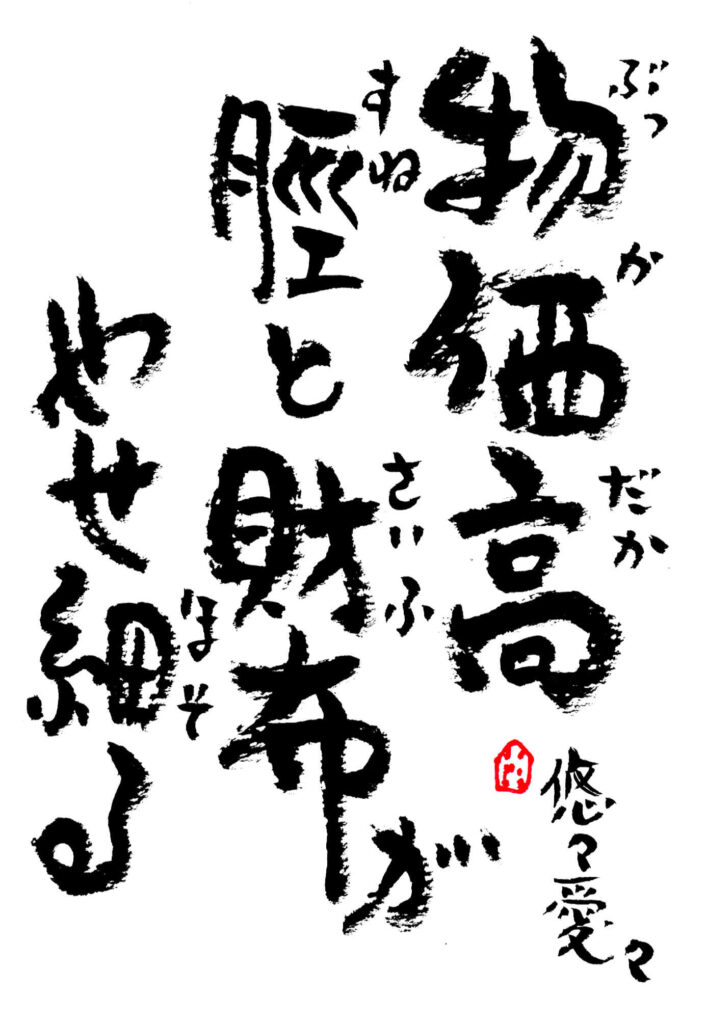 物価高
ぶっかだか
脛と財布が
すね
さいふ
やせ細る
ほそ
悠々愛々